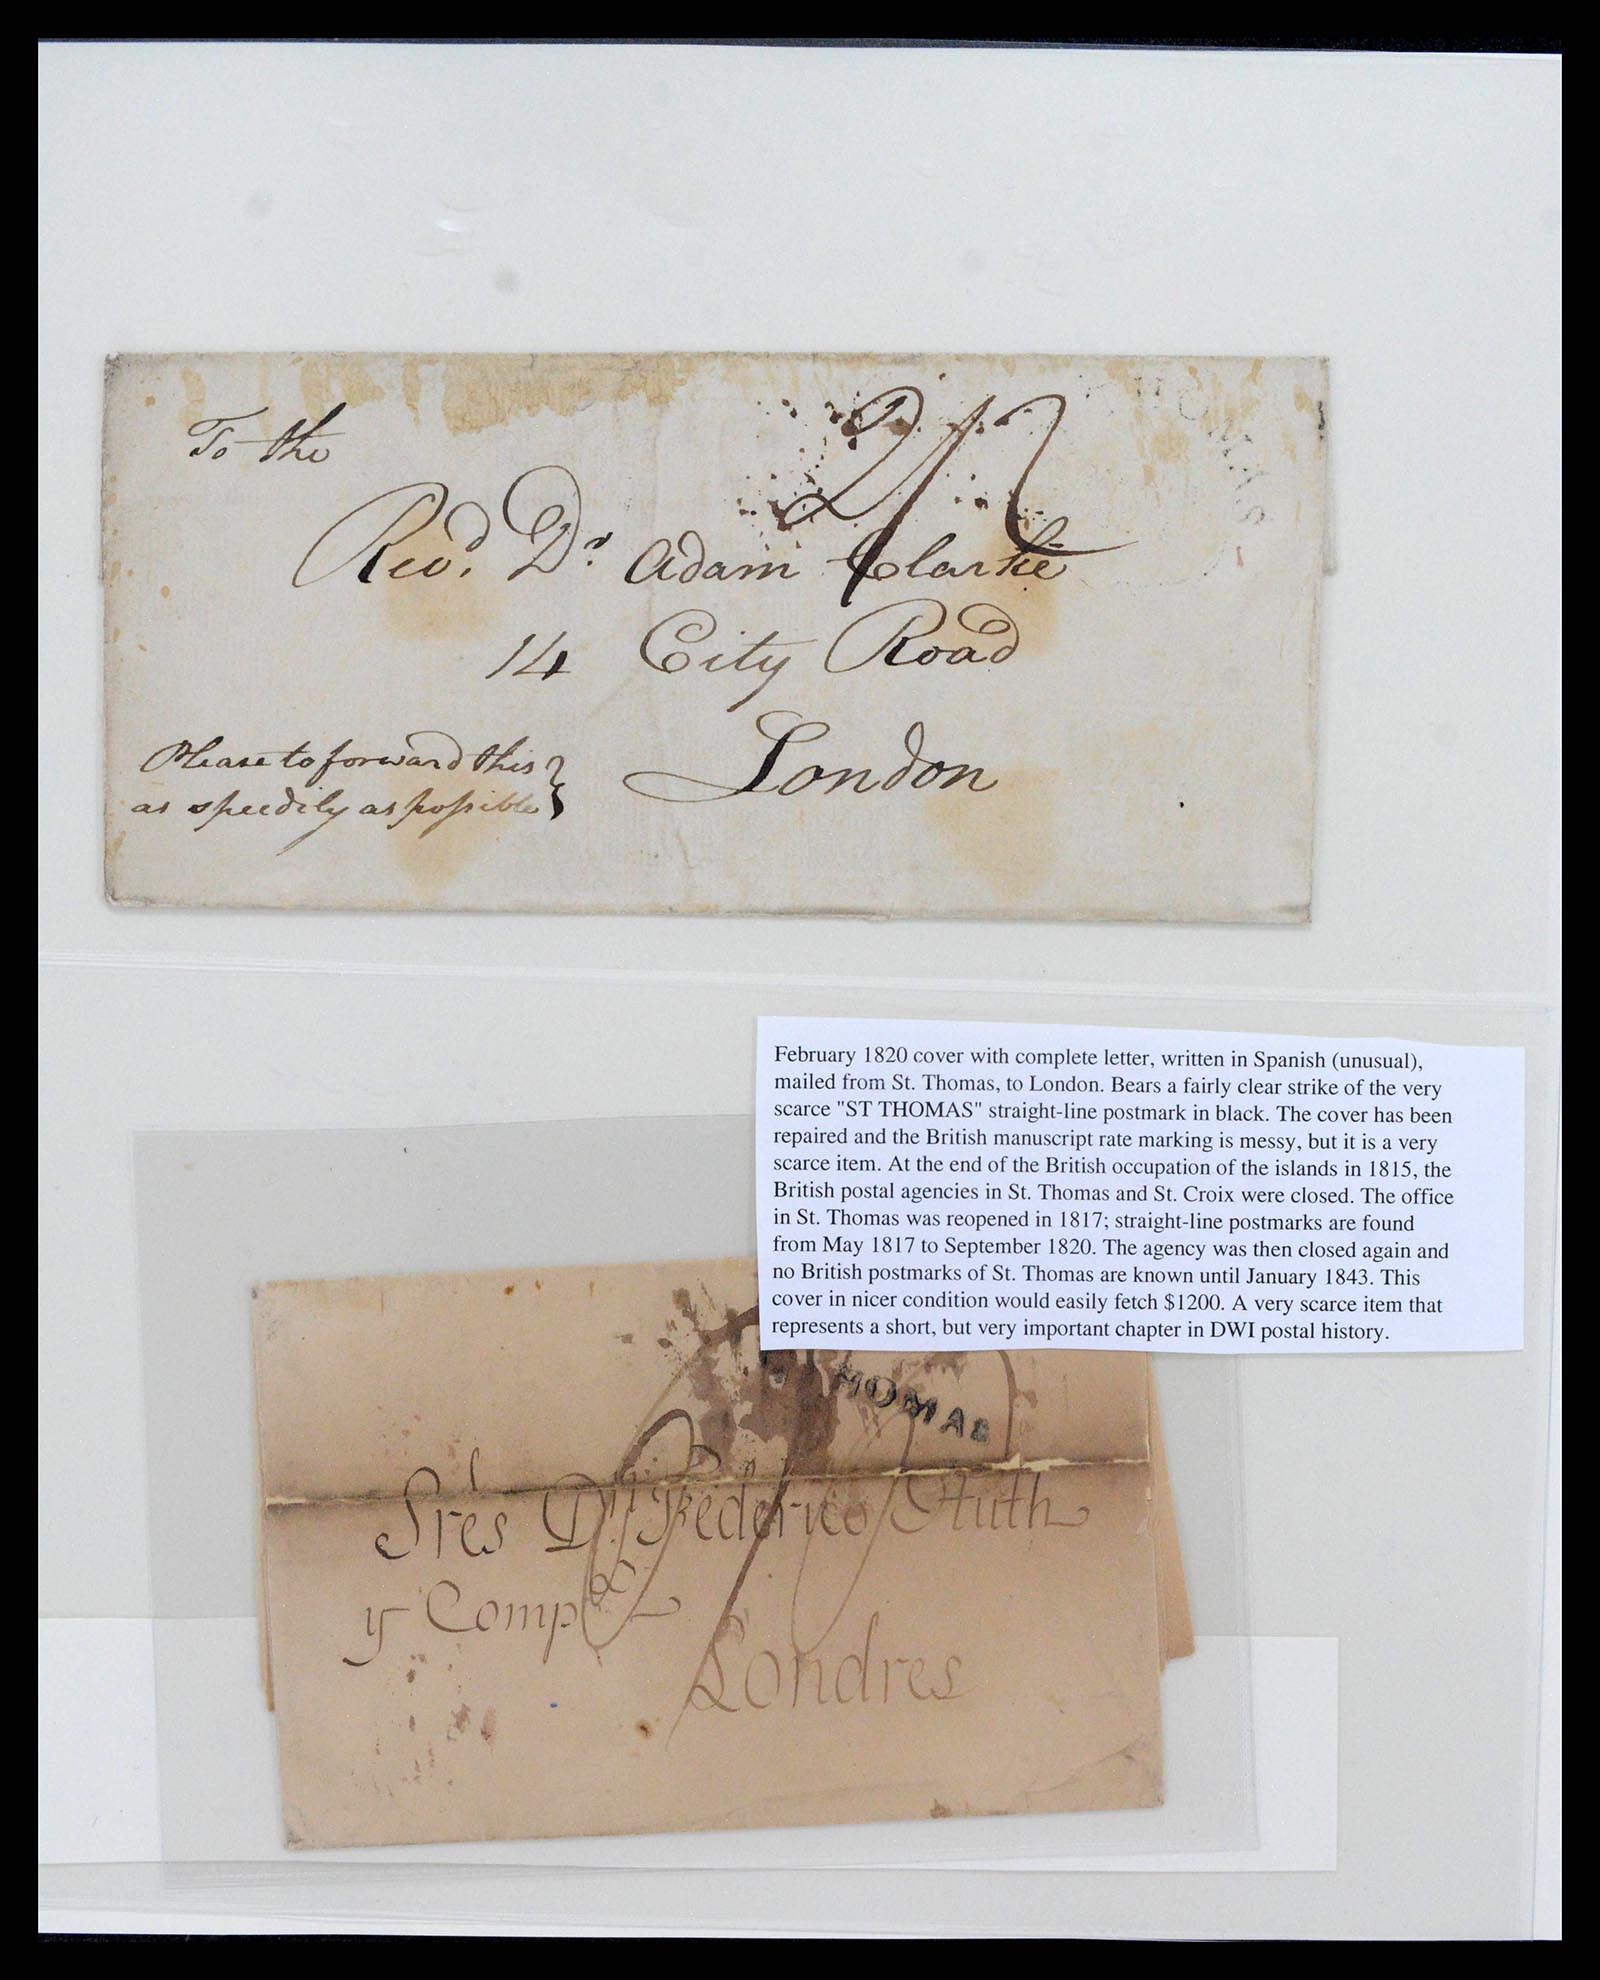 To the
THOMAS
2/2
Revd. Dr. Adam Clarke
14 City Road
London
Please to forward this
as speedily as possible
February 1820 cover with complete letter, written in Spanish (unusual),
mailed from St. Thomas, to London. Bears a fairly clear strike of the very
scarce "ST THOMAS" straight-line postmark in black. The cover has been
repaired and the British manuscript rate marking is messy, but it is a very
scarce item. At the end of the British occupation of the islands in 1815, the
British postal agencies in St. Thomas and St. Croix were closed. The office
in St. Thomas was reopened in 1817; straight-line postmarks are found
from May 1817 to September 1820. The agency was then closed again and
no British postmarks of St. Thomas are known until January 1843. This
cover in nicer condition would easily fetch $1200. A very scarce item that
represents a short, but very important chapter in DWI postal history.
THOMAS
Sres Dn. Federico Huth
y Compa
Londres